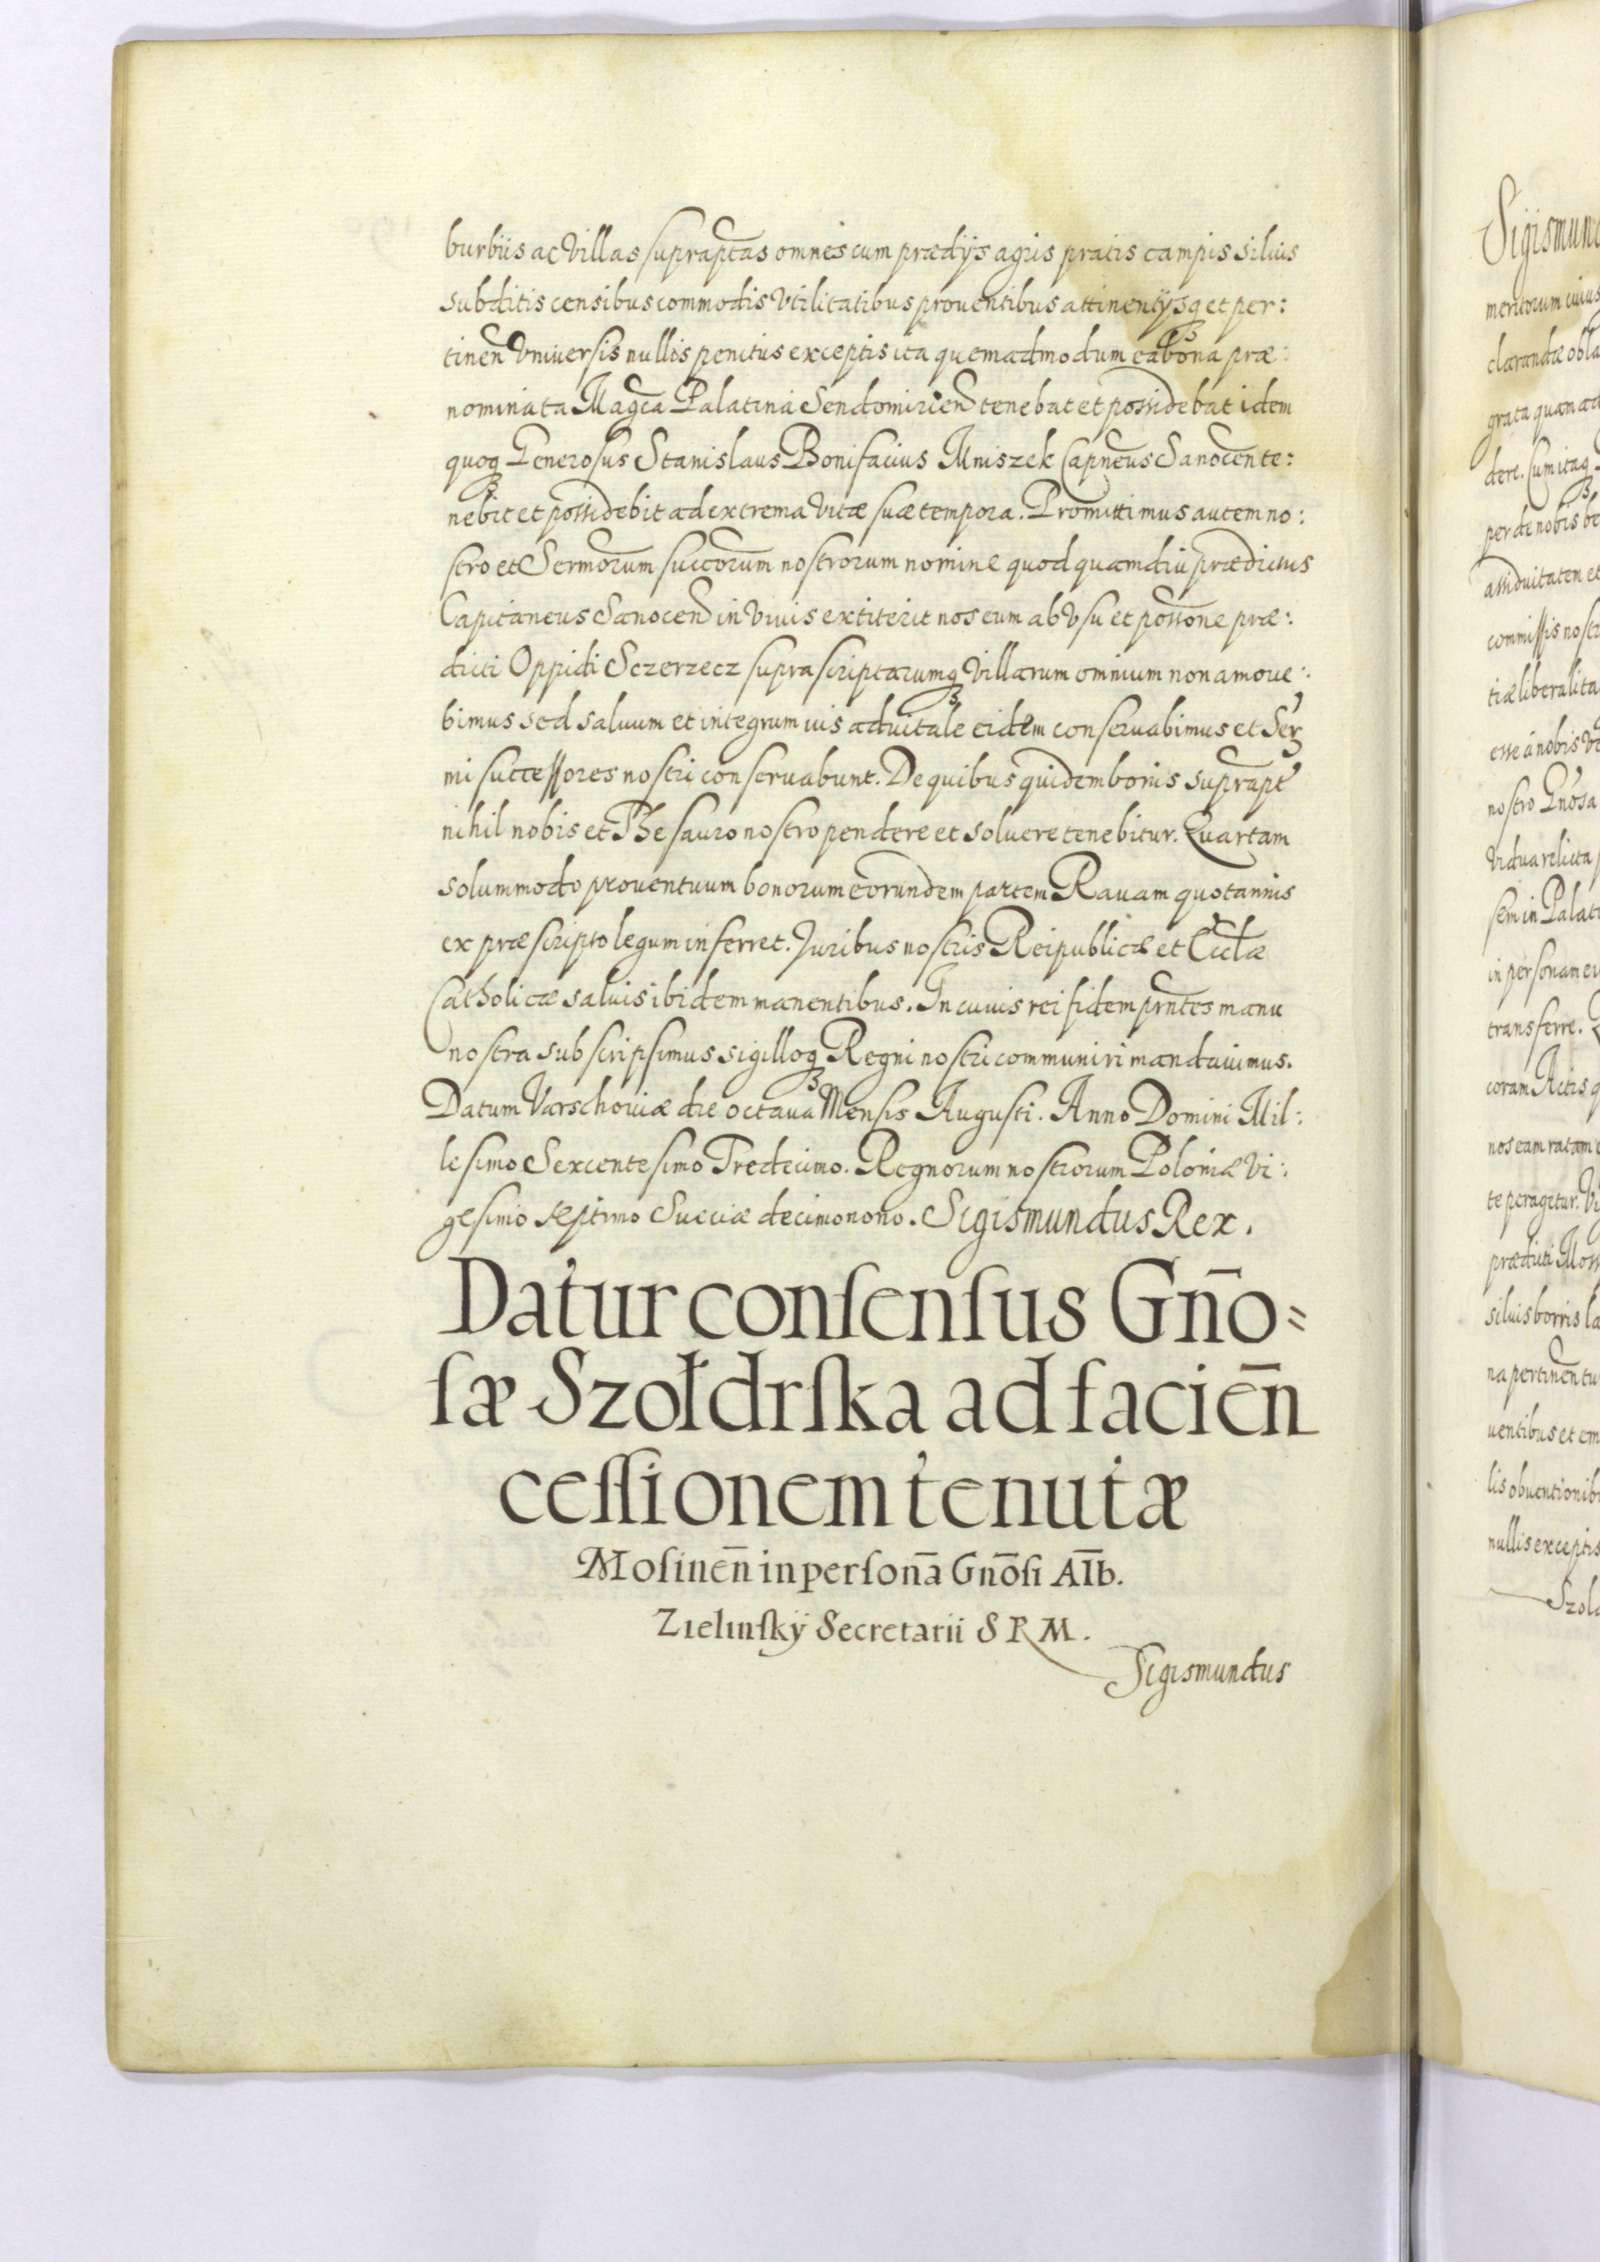 burbiis ac Villas supraptas omnes cum prædijs agris pratis campis siluis
subditis censibus commodis Vtilitatibus prouentibus attinentijsq et per:
tinen Vniuersis nullis penitus exceptis ita quemadmodum ea bona præ:
nominata Magca Palatina Sendomirien tenebat et possidebat idem
quoq Generosus Stanislaus Bonifacius Mniszek Capneus Sanocen te:
nebit et possidebit ad extrema vitæ suæ tempora. Promittimus autem no:
stro et Sermorum succorum nostrorum nomine quod quamdiu prædictus
Capitaneus Sanocen in viuis extiterit nos eum ab Vsu et possone præ:
dicti Oppidi Sczerzecz suprascriptarumq Villarum omnium non amoue:
bimus sed saluum et integrum ius aduitale eidem conseruabimus et Ser
mi successores nostri conseruabunt. De quibus quidem bonis suprapt
nihil nobis et Thesauro nostro pendere et soluere tenebitur. Quartam
solummodo prouentuum bonorum eorundem partem Rauam quotannis
ex præscripto legum inferret. Juribus nostris Reipublicæ et Ecclæ
Catholicæ saluis ibidem manentibus. In cuius rei fidem prntes manu
nostra subscripsimus sigilloq Regni nostri communiri mandauimus.
Datum Varschouiæ die octaua Mensis Augusti. Anno Domini Mil:
lesimo Sexcentesimo Tredecimo. Regnorum nostrorum Poloniæ Vi:
gesimo septimo Sueciæ decimonono. Sigismundus Rex.
Datur consensus Gnō=
sæ Szołdrska ad facien̄
cessionem tenutæ
Mosinen̄ in personā Gnōsi Alb.
Zielinskÿ Secretarii S R M.
Sigismundus
meritorum cuius
grata quam
dere. Cum itaq
per de nobis be
assiduitatem et
commissis nostr
tiæ liberalita
esse á nobis
nostro Gnosa
Vidua relicta
sem in Palat
in personam eu
transferre.
coram Actis q
nos eam ratam
te peragetur. Vi
prædicti
siluis borris la
na pertinen tu
uentibus et em
lis obuentionib
nullis exceptis
Szold